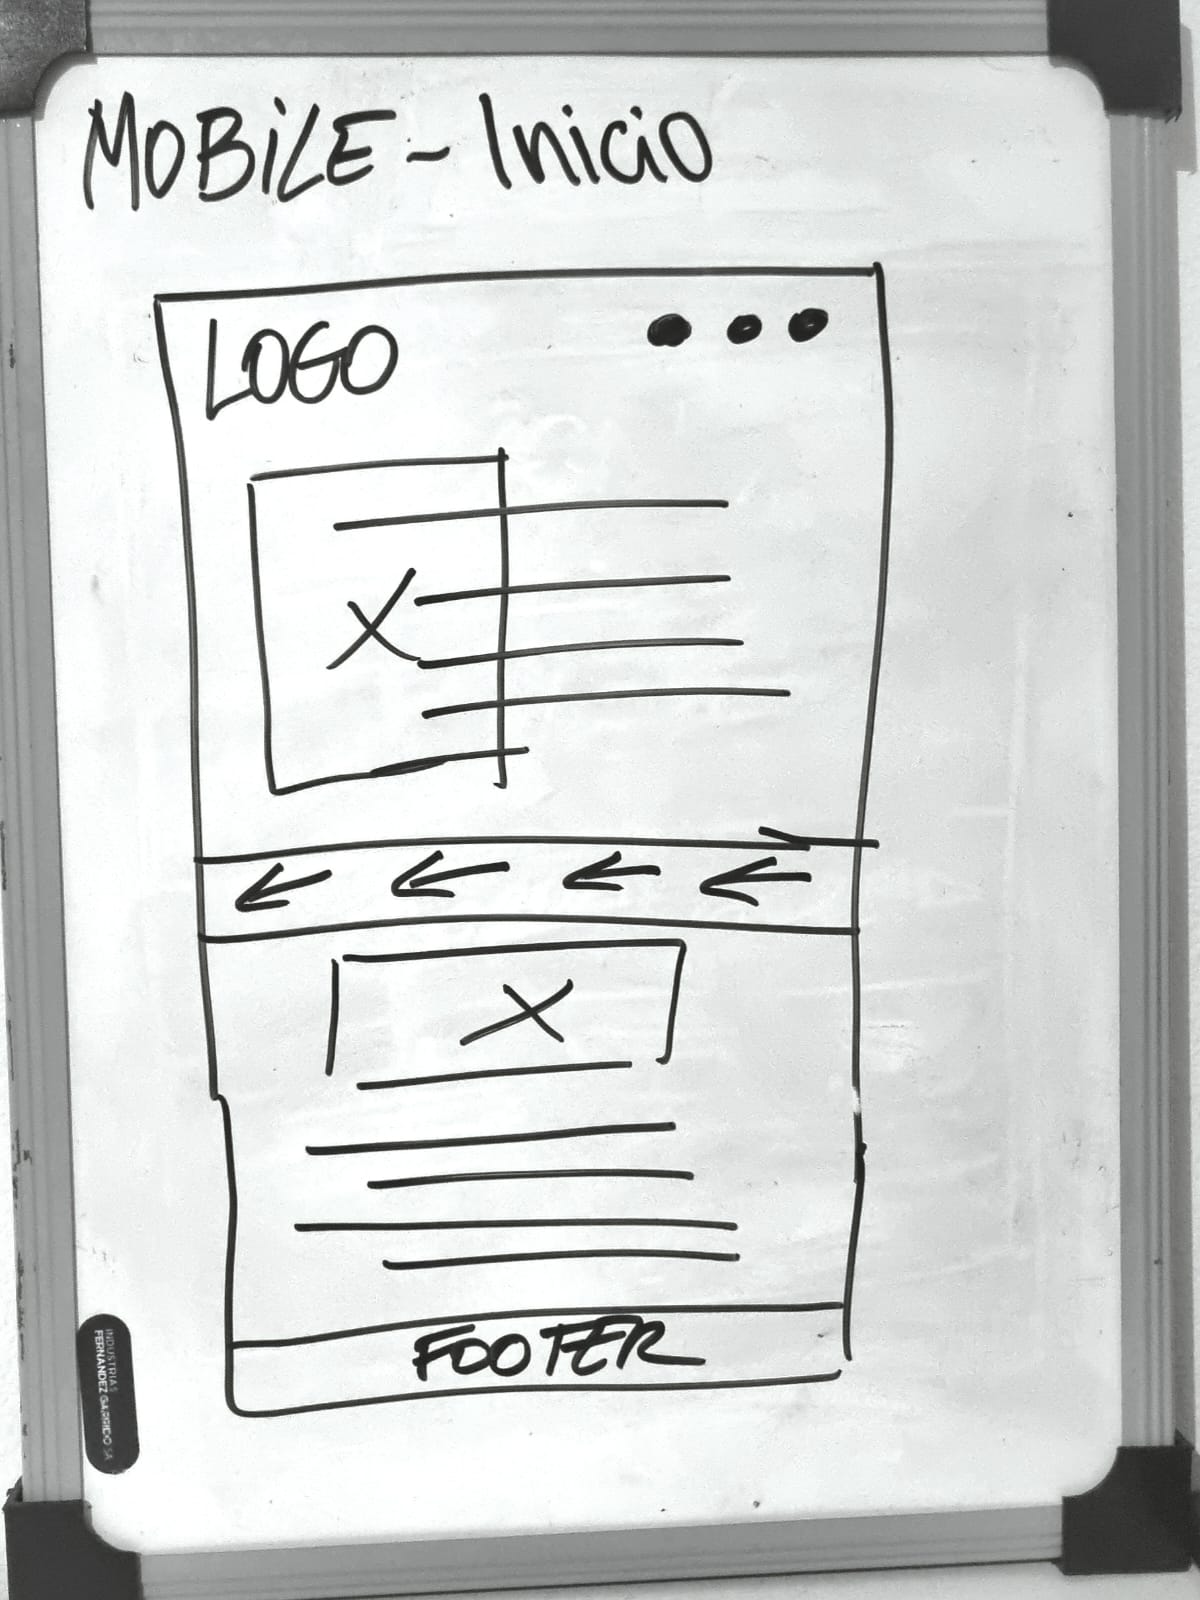 MOBiLE - Inicio
LOGO
FOOTER
INDUSTRIAS
FERNANDEZ GARRIDO SA